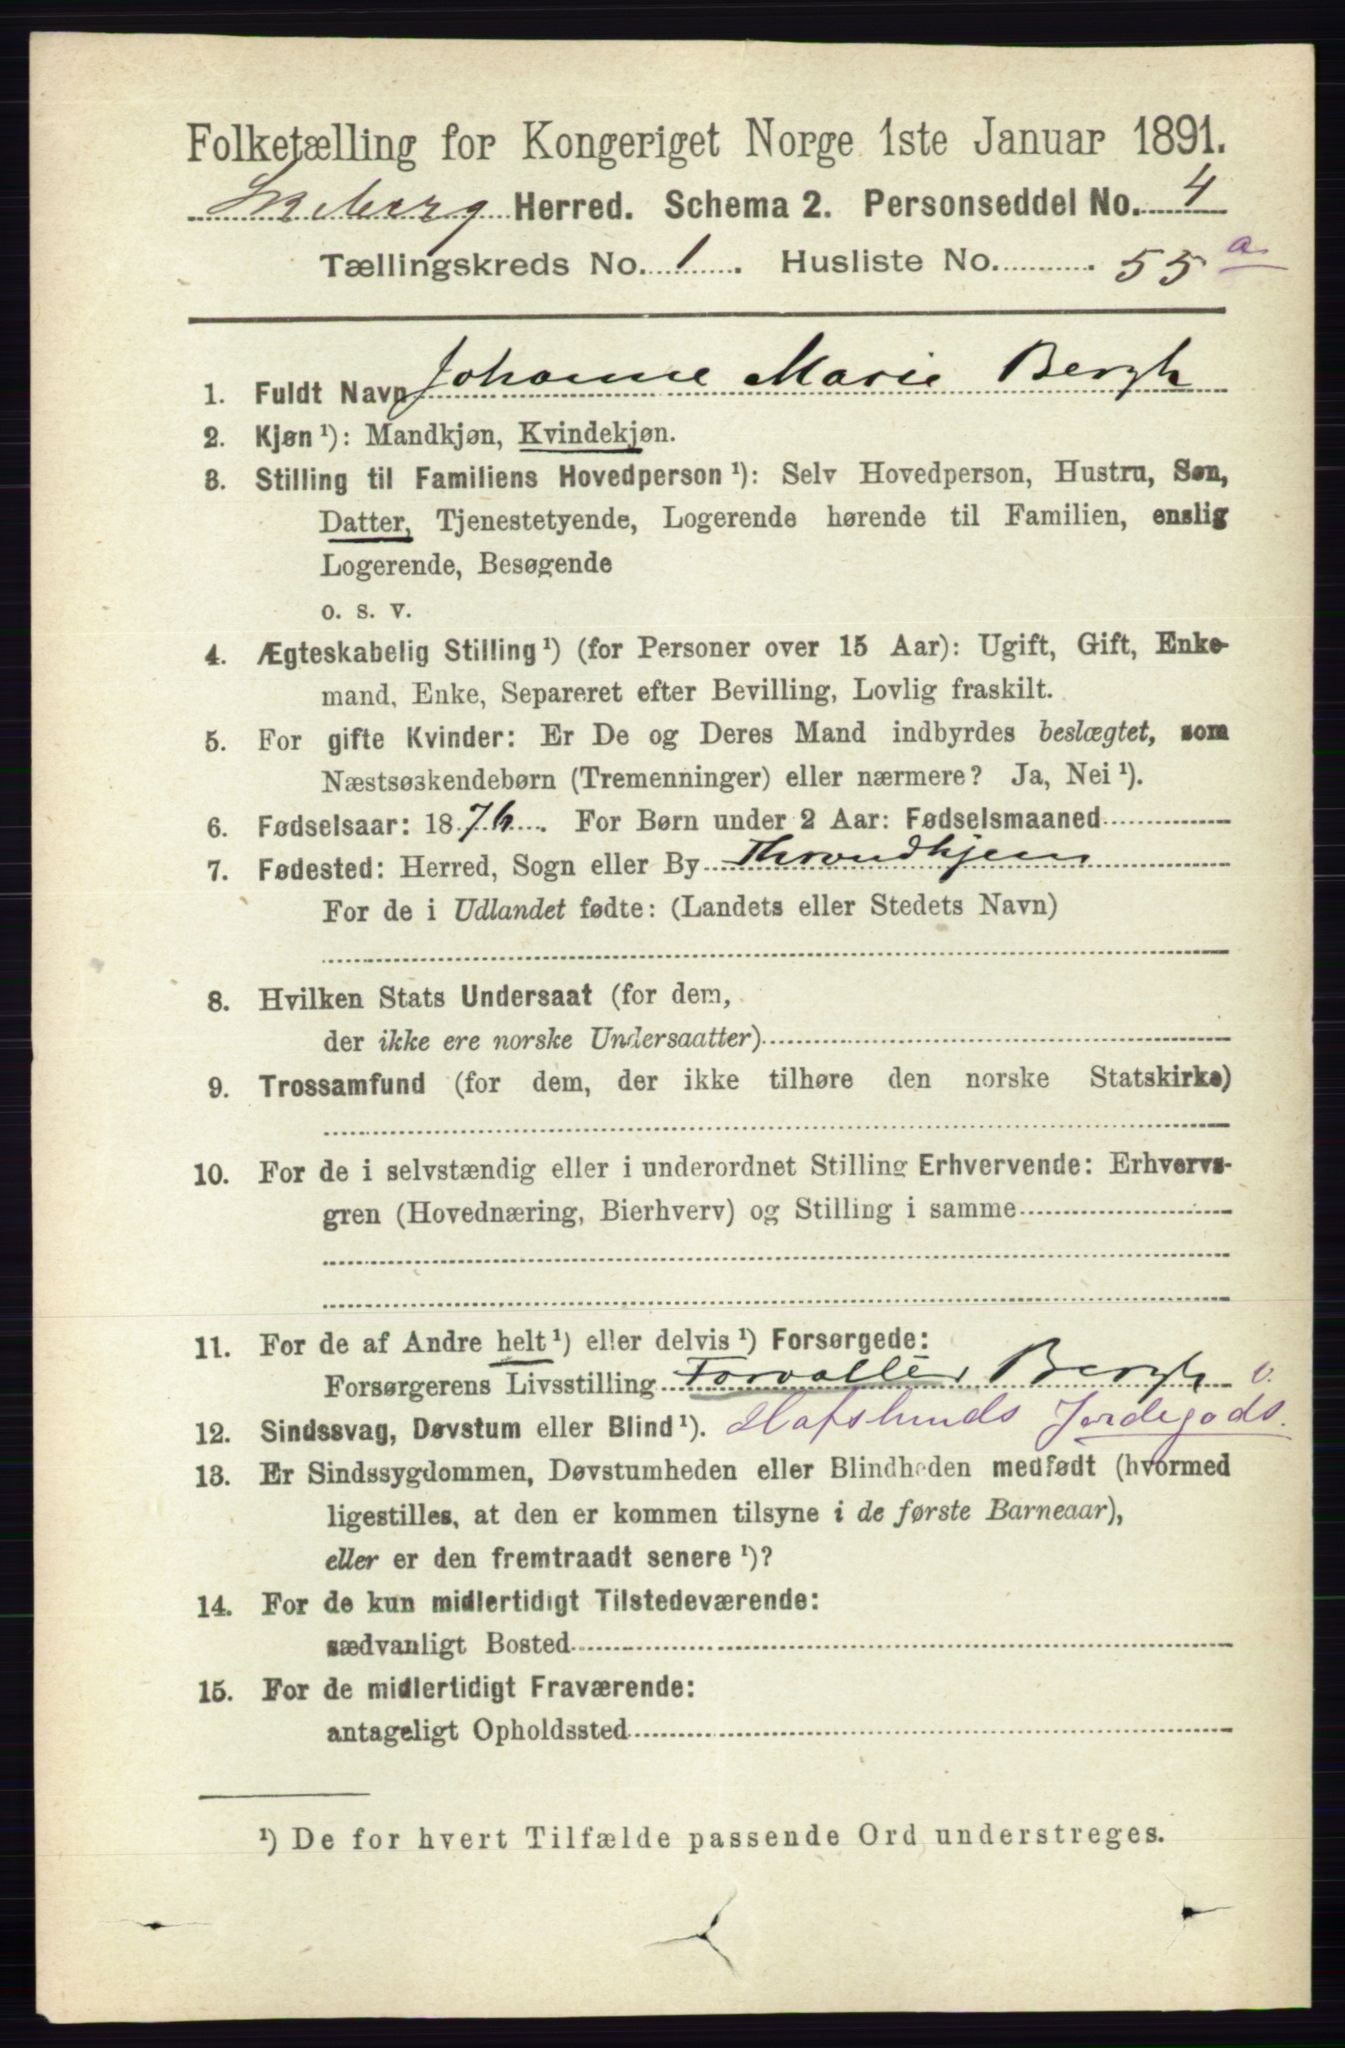 Folketælling for Kongeriget Norge 1ste Januar 1891.
Skjeberg Herred. Schema 2. Personseddel No. 4
Tællingskreds No. 1. Husliste No. 55 a
1. Fuldt Navn Johanne Marie Bergh
2. Kjøn ¹): Mandkjøn, Kvindekjøn.
3. Stilling til Familiens Hovedperson ¹): Selv Hovedperson, Hustru, Søn,
Datter, Tjenestetyende, Logerende hørende til Familien, enslig
Logerende, Besøgende
o. s. v.
4. Ægteskabelig Stilling ¹) (for Personer over 15 Aar): Ugift, Gift, Enke-
mand, Enke, Separeret efter Bevilling, Lovlig fraskilt.
5. For gifte Kvinder: Er De og Deres Mand indbyrdes beslægtet, som
Næstsøskendebørn (Tremenninger) eller nærmere? Ja, Nei ¹).
6. Fødselsaar: 1876. For Børn under 2 Aar: Fødselsmaaned
7. Fødested: Herred, Sogn eller By Throndhjem
For de i Udlandet fødte: (Landets eller Stedets Navn)
8. Hvilken Stats Undersaat (for dem,
der ikke ere norske Undersaatter)
9. Trossamfund (for dem, der ikke tilhøre den norske Statskirke)
10. For de i selvstændig eller i underordnet Stilling Erhvervende: Erhvervs-
gren (Hovednæring, Bierhverv) og Stilling i samme
11. For de af Andre helt ¹) eller delvis ¹) Forsørgede:
Forsørgerens Livsstilling Forvalter Bergh v.
12. Sindssvag, Døvstum eller Blind ¹). Hafslunds Jordegods.
13. Er Sindssygdommen, Døvstumheden eller Blindheden medfødt (hvormed
ligestilles, at den er kommen tilsyne i de første Barneaar),
eller er den fremtraadt senere ¹)?
14. For de kun midlertidigt Tilstedeværende:
sædvanligt Bosted
15. For de midlertidigt Fraværende:
antageligt Opholdssted
¹) De for hvert Tilfælde passende Ord understreges.